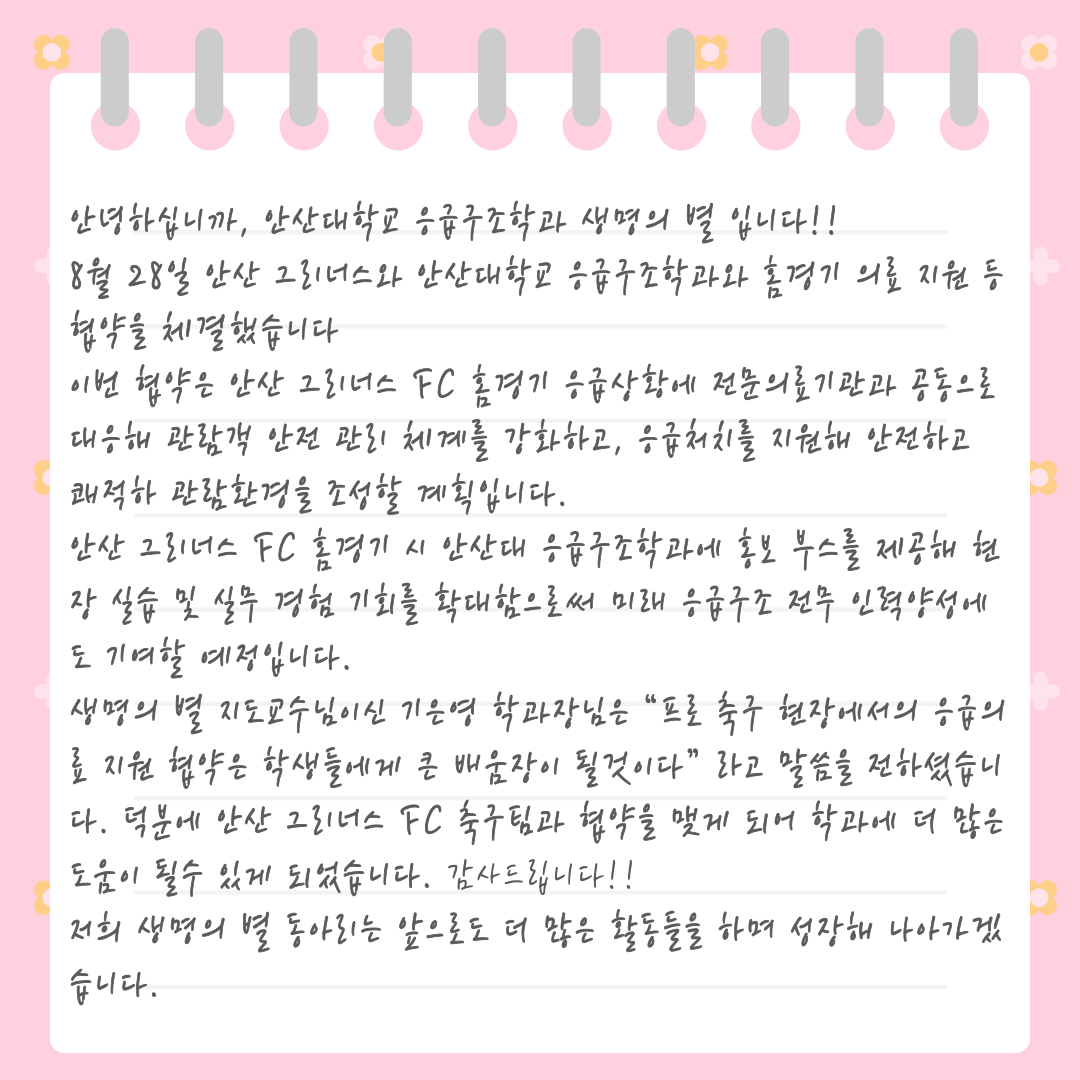 안녕하십니까, 안산대학교 응급구조학과 생명의 별 입니다!!
8월 28일 안산 그리너스와 안산대학교 응급구조학과와 홈경기 의료 지원 등
협약을 체결했습니다
이번 협약은 안산 그리너스 FC 홈경기 응급상황에 전문의료기관과 공동으로
대응해 관람객 안전 관리 체계를 강화하고, 응급처치를 지원해 안전하고
쾌적하 관람환경을 조성할 계획입니다.
안산 그리너스 FC 홈경기 시 안산대 응급구조학과에 홍보 부스를 제공해 현
장 실습 및 실무 경험 기회를 확대함으로써 미래 응급구조 전무 인력양성에
도 기여할 예정입니다.
생명의 별 지도교수님이신 기은영 학과장님은 “프로 축구 현장에서의 응급의
료 지원 협약은 학생들에게 큰 배움장이 될것이다” 라고 말씀을 전하셨습니
다. 덕분에 안산 그리너스 FC 축구팀과 협약을 맺게 되어 학과에 더 많은
도움이 될수 있게 되었습니다. 감사드립니다!!
저희 생명의 별 동아리는 앞으로도 더 많은 활동들을 하며 성장해 나아가겠
습니다.